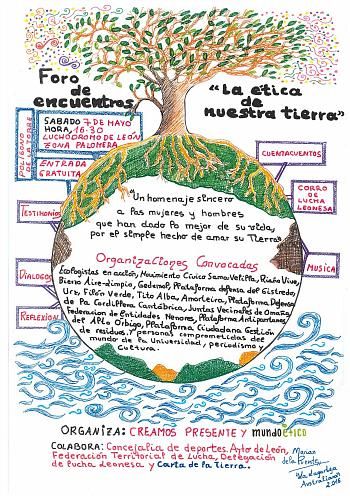 Foro
de
encuentros
"La etica
de
nuestra tierra"
SABADO 7 DE MAYO
HORA, 16-30
LUCHODROMO DE LEÓN
ZONA PALOMERA
POLIGONO
DE LA TORRE
ENTRADA
GRATUITA
CUENTACUENTOS
CORRO
DE LUCHA
LEONESA
MUSICA
TESTIMONIOS
DIALOGOS
REFLEXION
"Un homenaje sincero
a las mujeres y hombres
que han dado lo mejor de su vida,
por el simple hecho de amar su Tierra"
Organizaciones Convocadas
Ecologistas en acción, Movimiento Cívico Sama-Velilla, Riaño Vive,
Bierzo Aire-Limpio, Gedemol, Plataforma defensa del Gistredo,
Urz, Filón Verde, Tito Alba, Amorteira, Plataforma Defensa
de la Cordillera Cantábrica, Juntas Vecinales de Omaña,
Federacion de Entidades Menores, Plataforma Antipantanos
del Alto Orbigo, Plataforma Ciudadana Gestión
de residuos. Y personas comprometidas del
mundo de la Universidad, periodismo y
cultura.
ORGANIZA: CREAMOS PRESENTE Y mundoético
COLABORA: Concejalia de deportes Ayto de León,
Federación Territorial de Lucha, Delegación
de Lucha Leonesa y Carta de la Tierra.
Marian
de la Puente
2016